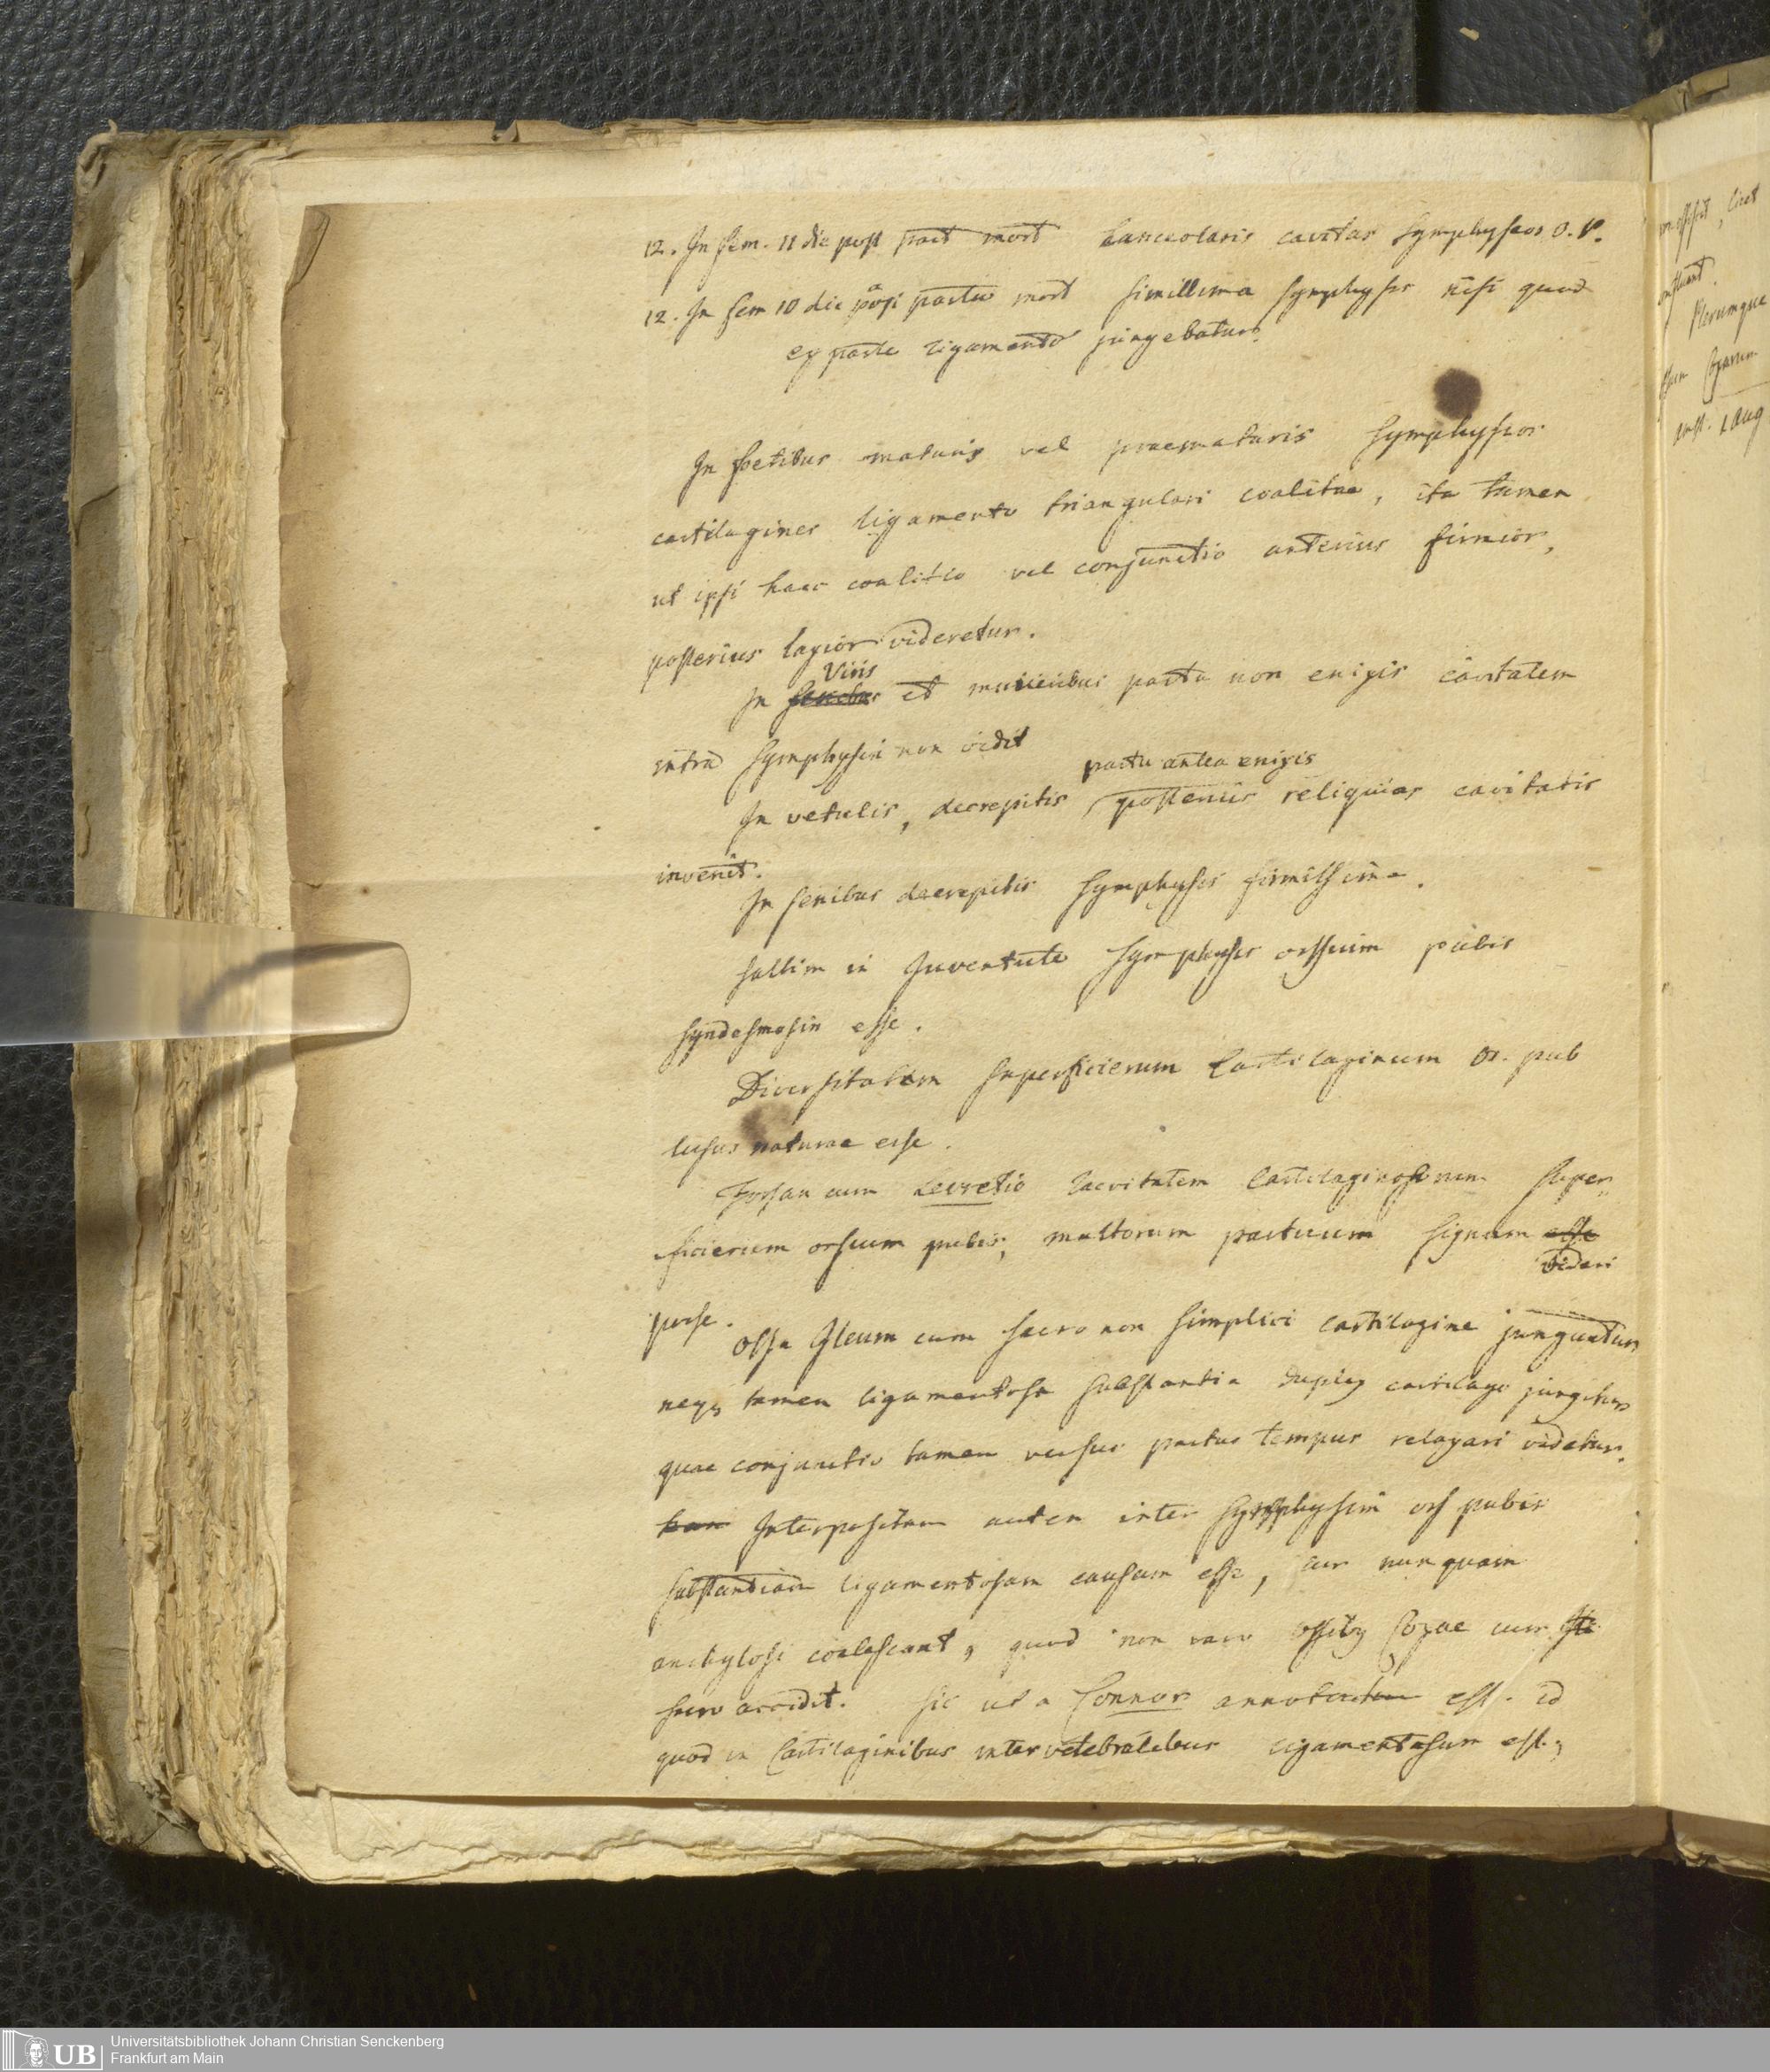 12. In fem. 11 die post part mort lanceolaris cavitas Symphyseos O. P.
12. In fem 10 die post partu mort simillima Symphysis nisi quod
ex parte ligamento jungebatur.
In foetibus maturis vel praematuris Symphyseos
cartilagines ligamento triangulari coalitae, ita tamen
ut ipsi haec coalitio vel conjunctio anterius firmior,
posterius laxior videretur.
Viris
In senibus et mulieribus partu non enixis cavitatem
intra Symphysin non vidit
partu antea enixis
In vetulis, decrepitis, posterius reliquias cavitatis
invenit.
In senibus decrepitis Symphysis firmissima.
saltim in Juventute Symphysis ossium pubis
syndesmosin esse.
Diversitatem superficierum Cartilaginum Os. pub
lusus naturae esse.
Forsan cum Levretio laevitatem Cartilaginosarum super„
ficierum ossium pubis, multorum partuum signum esse
videri
posse.
Ossa Ileum cum sacro non simplici cartilagine junguntur
neq, tamen ligamentosa substantia duplex cartilago jungitur
quae conjunctio tamen versus partus tempus relaxari videtur.
Interpositam autem inter Symphysin oss pubis
substantiam ligamentosam causam esse, cur nunquam
anchylosi coalescant, quod non raro ossibus Coxae cum
sacro accidit. Sic ut a Connor annotatum est. id
quod in Cartilaginibus intervetebralibus ligamentosum est,
Plerumque
Universitätsbibliothek Johann Christian Senckenberg
Frankfurt am Main
UB